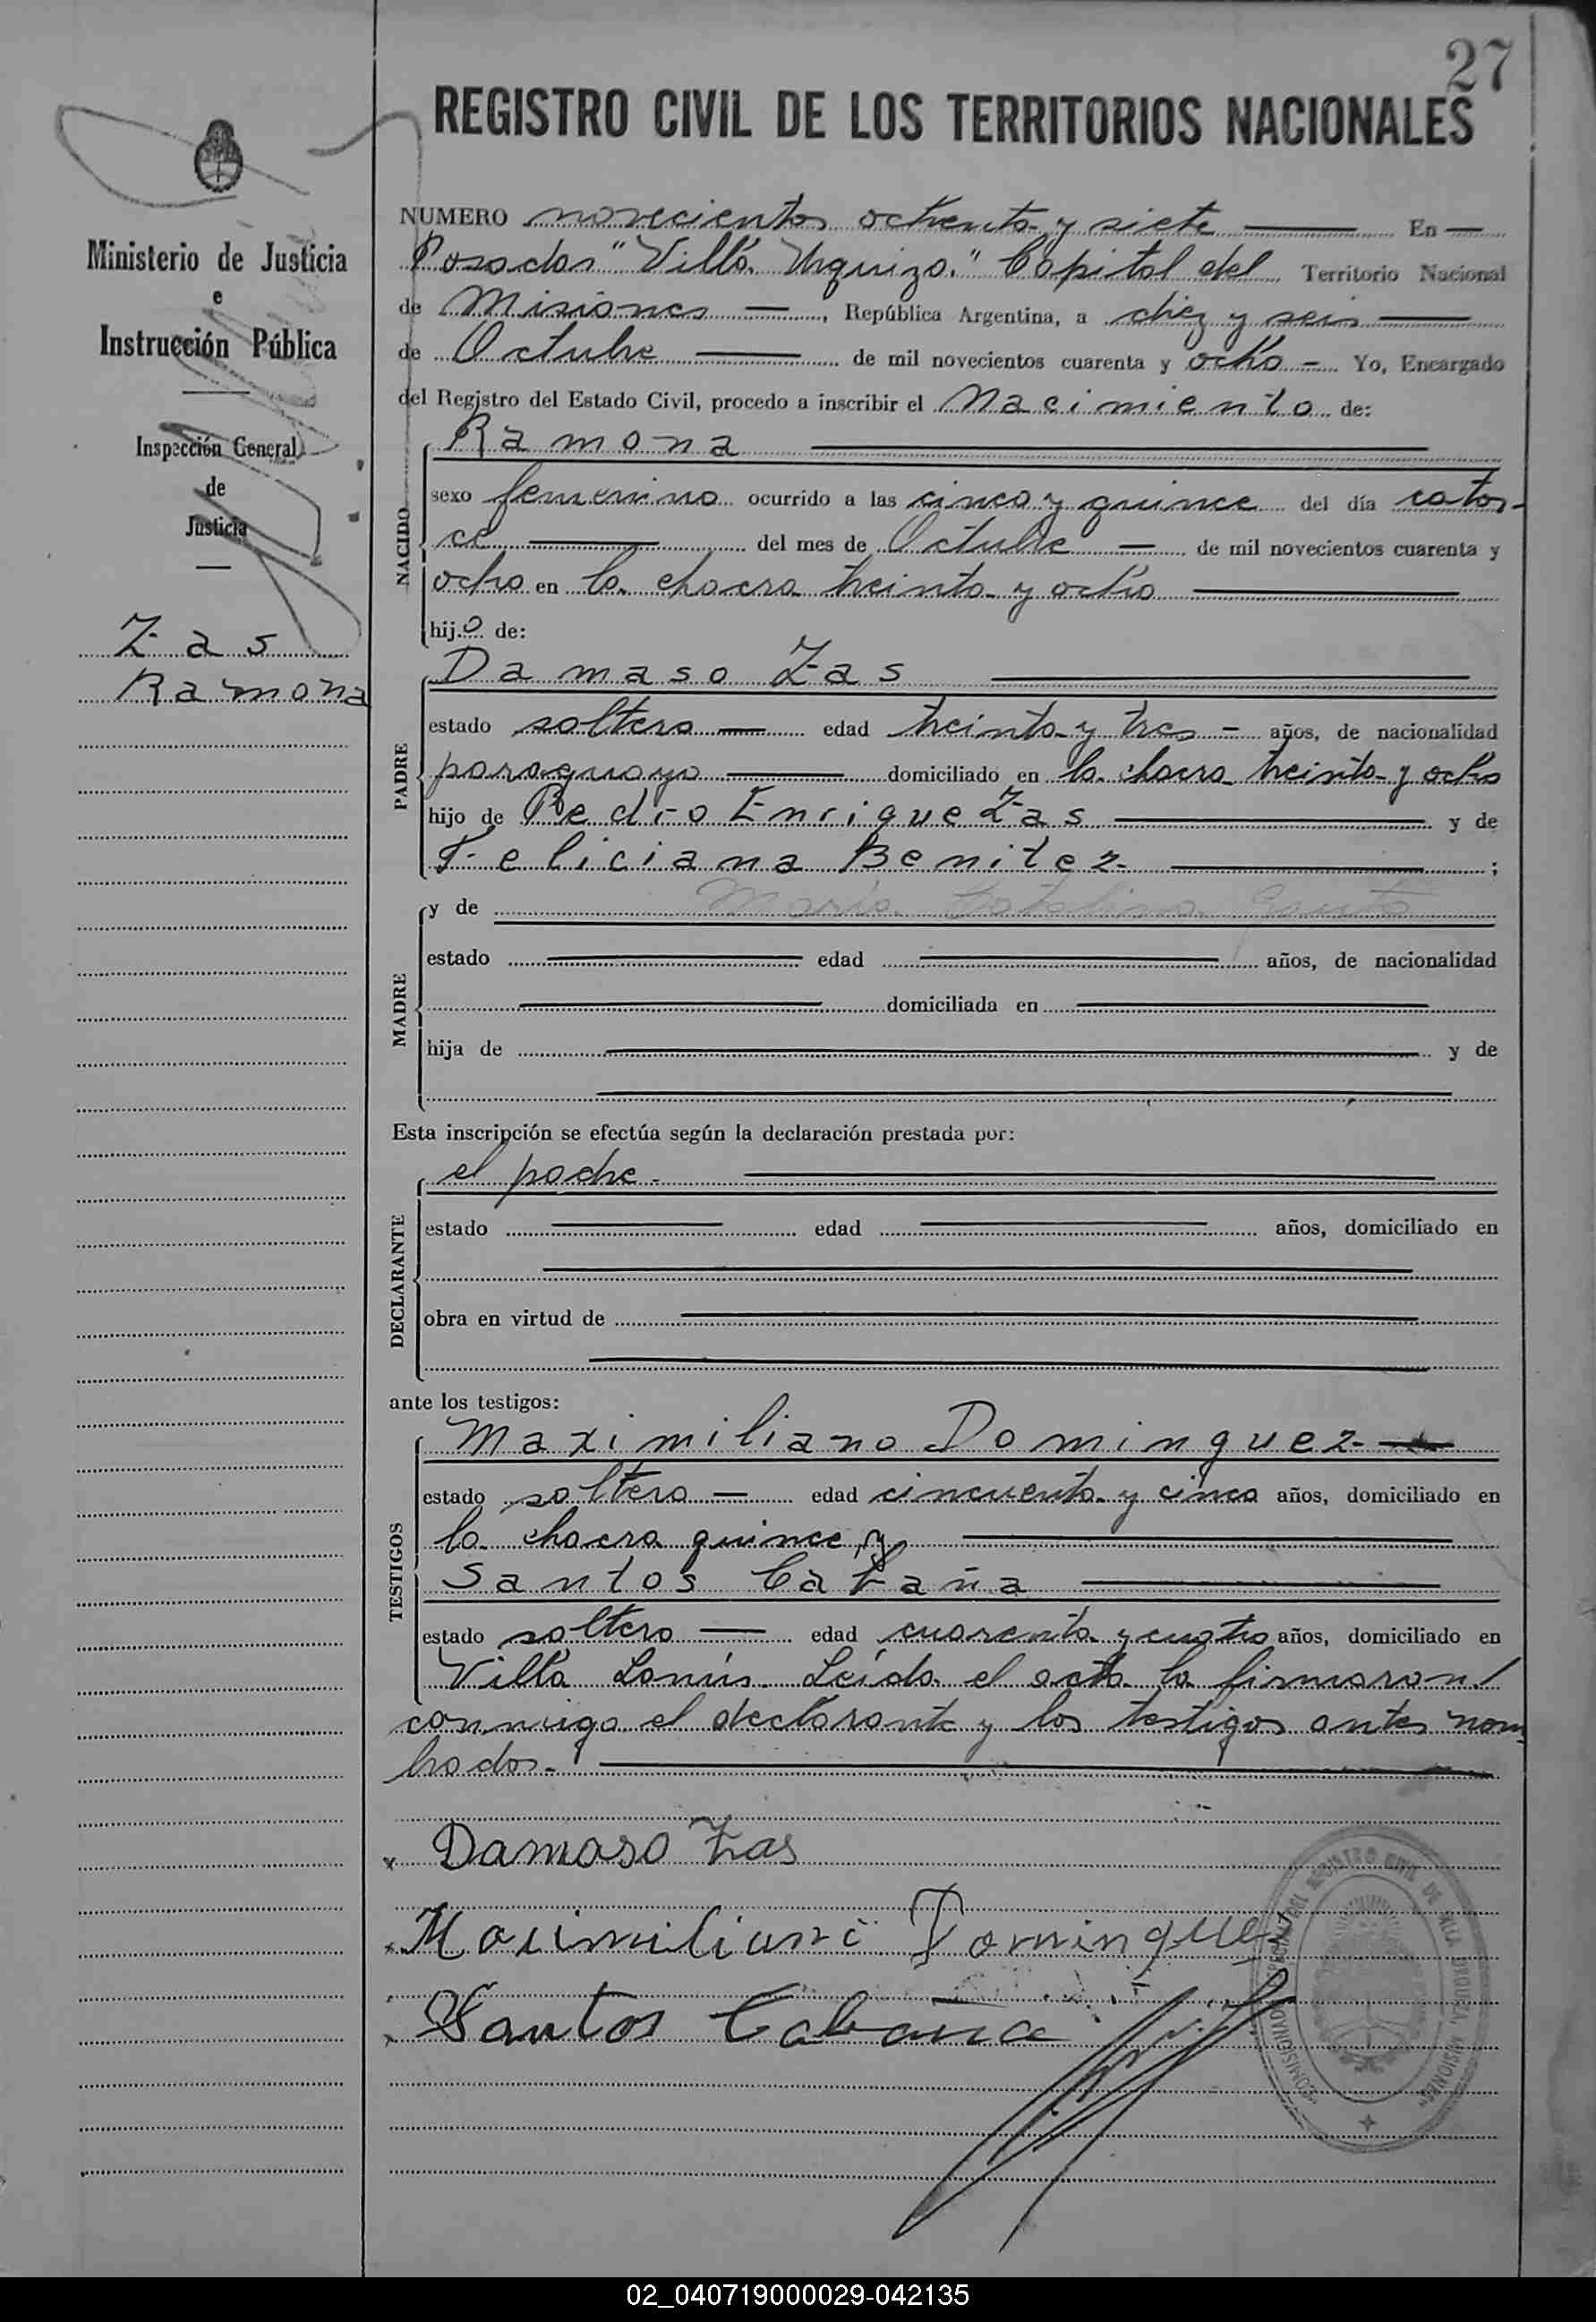 27
REGISTRO CIVIL DE LOS TERRITORIOS NACIONALES
Ministerio de Justicia
e
Instrucción Pública
Inspección General
de
Justicia
Zas
Ramona
NUMERO novecientos ochenta y siete En
Posadas "Villa Urquiza." Capital del Territorio Nacional
de Misiones, República Argentina, a diez y seis
de Octubre de mil novecientos cuarenta y ocho - Yo, Encargado
del Registro del Estado Civil, procedo a inscribir el Nacimiento de:
Ramona
NACIDO
sexo femenino ocurrido a las cinco y quince del día cator-
ce del mes de Octubre de mil novecientos cuarenta y
ocho en la chacra treinta y ocho
hij.o de:
PADRE
Damaso Zas
estado soltero edad treinta y tres - años, de nacionalidad
paraguayo domiciliado en la chacra treinta y ocho
hijo de Pedro Enrique Zas y de
Feliciana Benitez ;
MADRE
y de Maria Catalina
estado edad años, de nacionalidad
domiciliada en
hija de y de
Esta inscripción se efectúa según la declaración prestada por:
DECLARANTE
el padre.
estado edad años, domiciliado en
obra en virtud de
ante los testigos:
TESTIGOS
Maximiliano Dominguez
estado soltero edad cincuenta y cinco años, domiciliado en
la chacra quince y
Santos Cabaña
estado soltero edad cuarenta y cuatro años, domiciliado en
Villa Lanús. Leída el acta la firmaron/
conmigo el declarante y los testigos antes nom
brados.-
Damaso Zas
Maximiliano Dominguez
Santos Cabaña
02_040719000029-042135